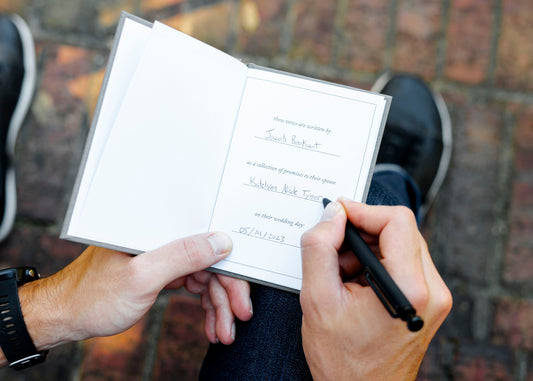 these vows are written by
Jacob
as a collection of promises to their spouse
Katelynn Nicole
on their wedding day:
05/14/2023